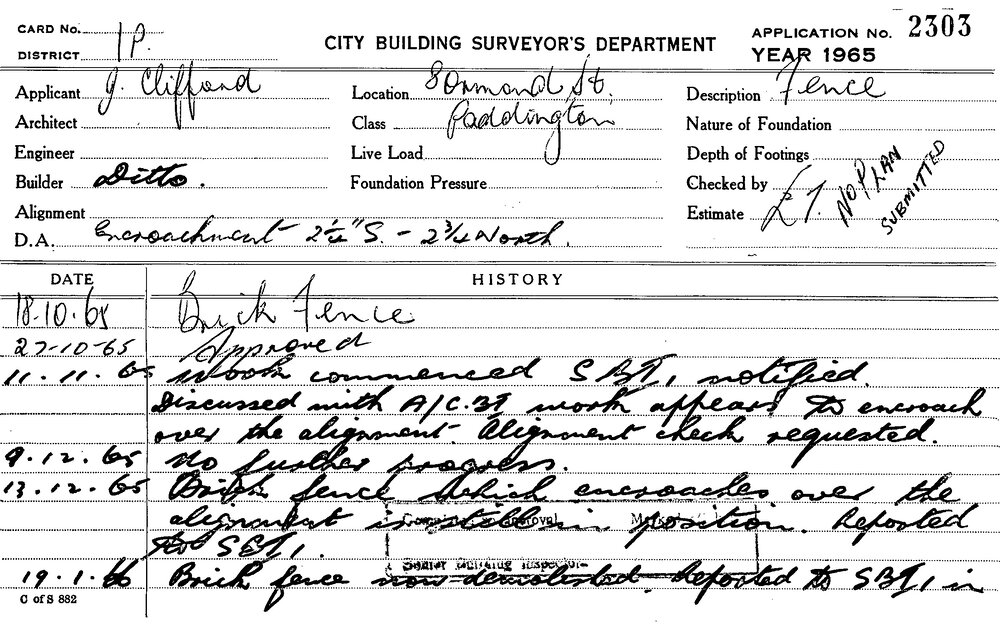 CARD No. 1P.
DISTRICT
CITY BUILDING SURVEYOR'S DEPARTMENT
APPLICATION No. 2303
YEAR 1965
Applicant J. Clifford
Location 8 Ormond St.
Description Fence
Architect
Class Paddington
Nature of Foundation
Engineer
Live Load
Depth of Footings
Builder Ditto.
Foundation Pressure
Checked by
Alignment
Estimate £7. NO PLAN SUBMITTED
D.A. Encroachment - 2 1/4" S. - 2 3/4 North.
DATE HISTORY
18.10.65 Brick Fence
27-10-65 Approved
11.11.65 Work commenced SBI, notified.
Discussed with A/C.BI work appears to encroach
over the alignment. Alignment check requested.
9.12.65 No further progress.
13.12.65 Brick fence which encroaches over the
alignment is still in position. Reported
to SBI,.
Senior Building Inspector
19.1.66 Brick fence now demolished. Reported to SBI, in
C of S 882